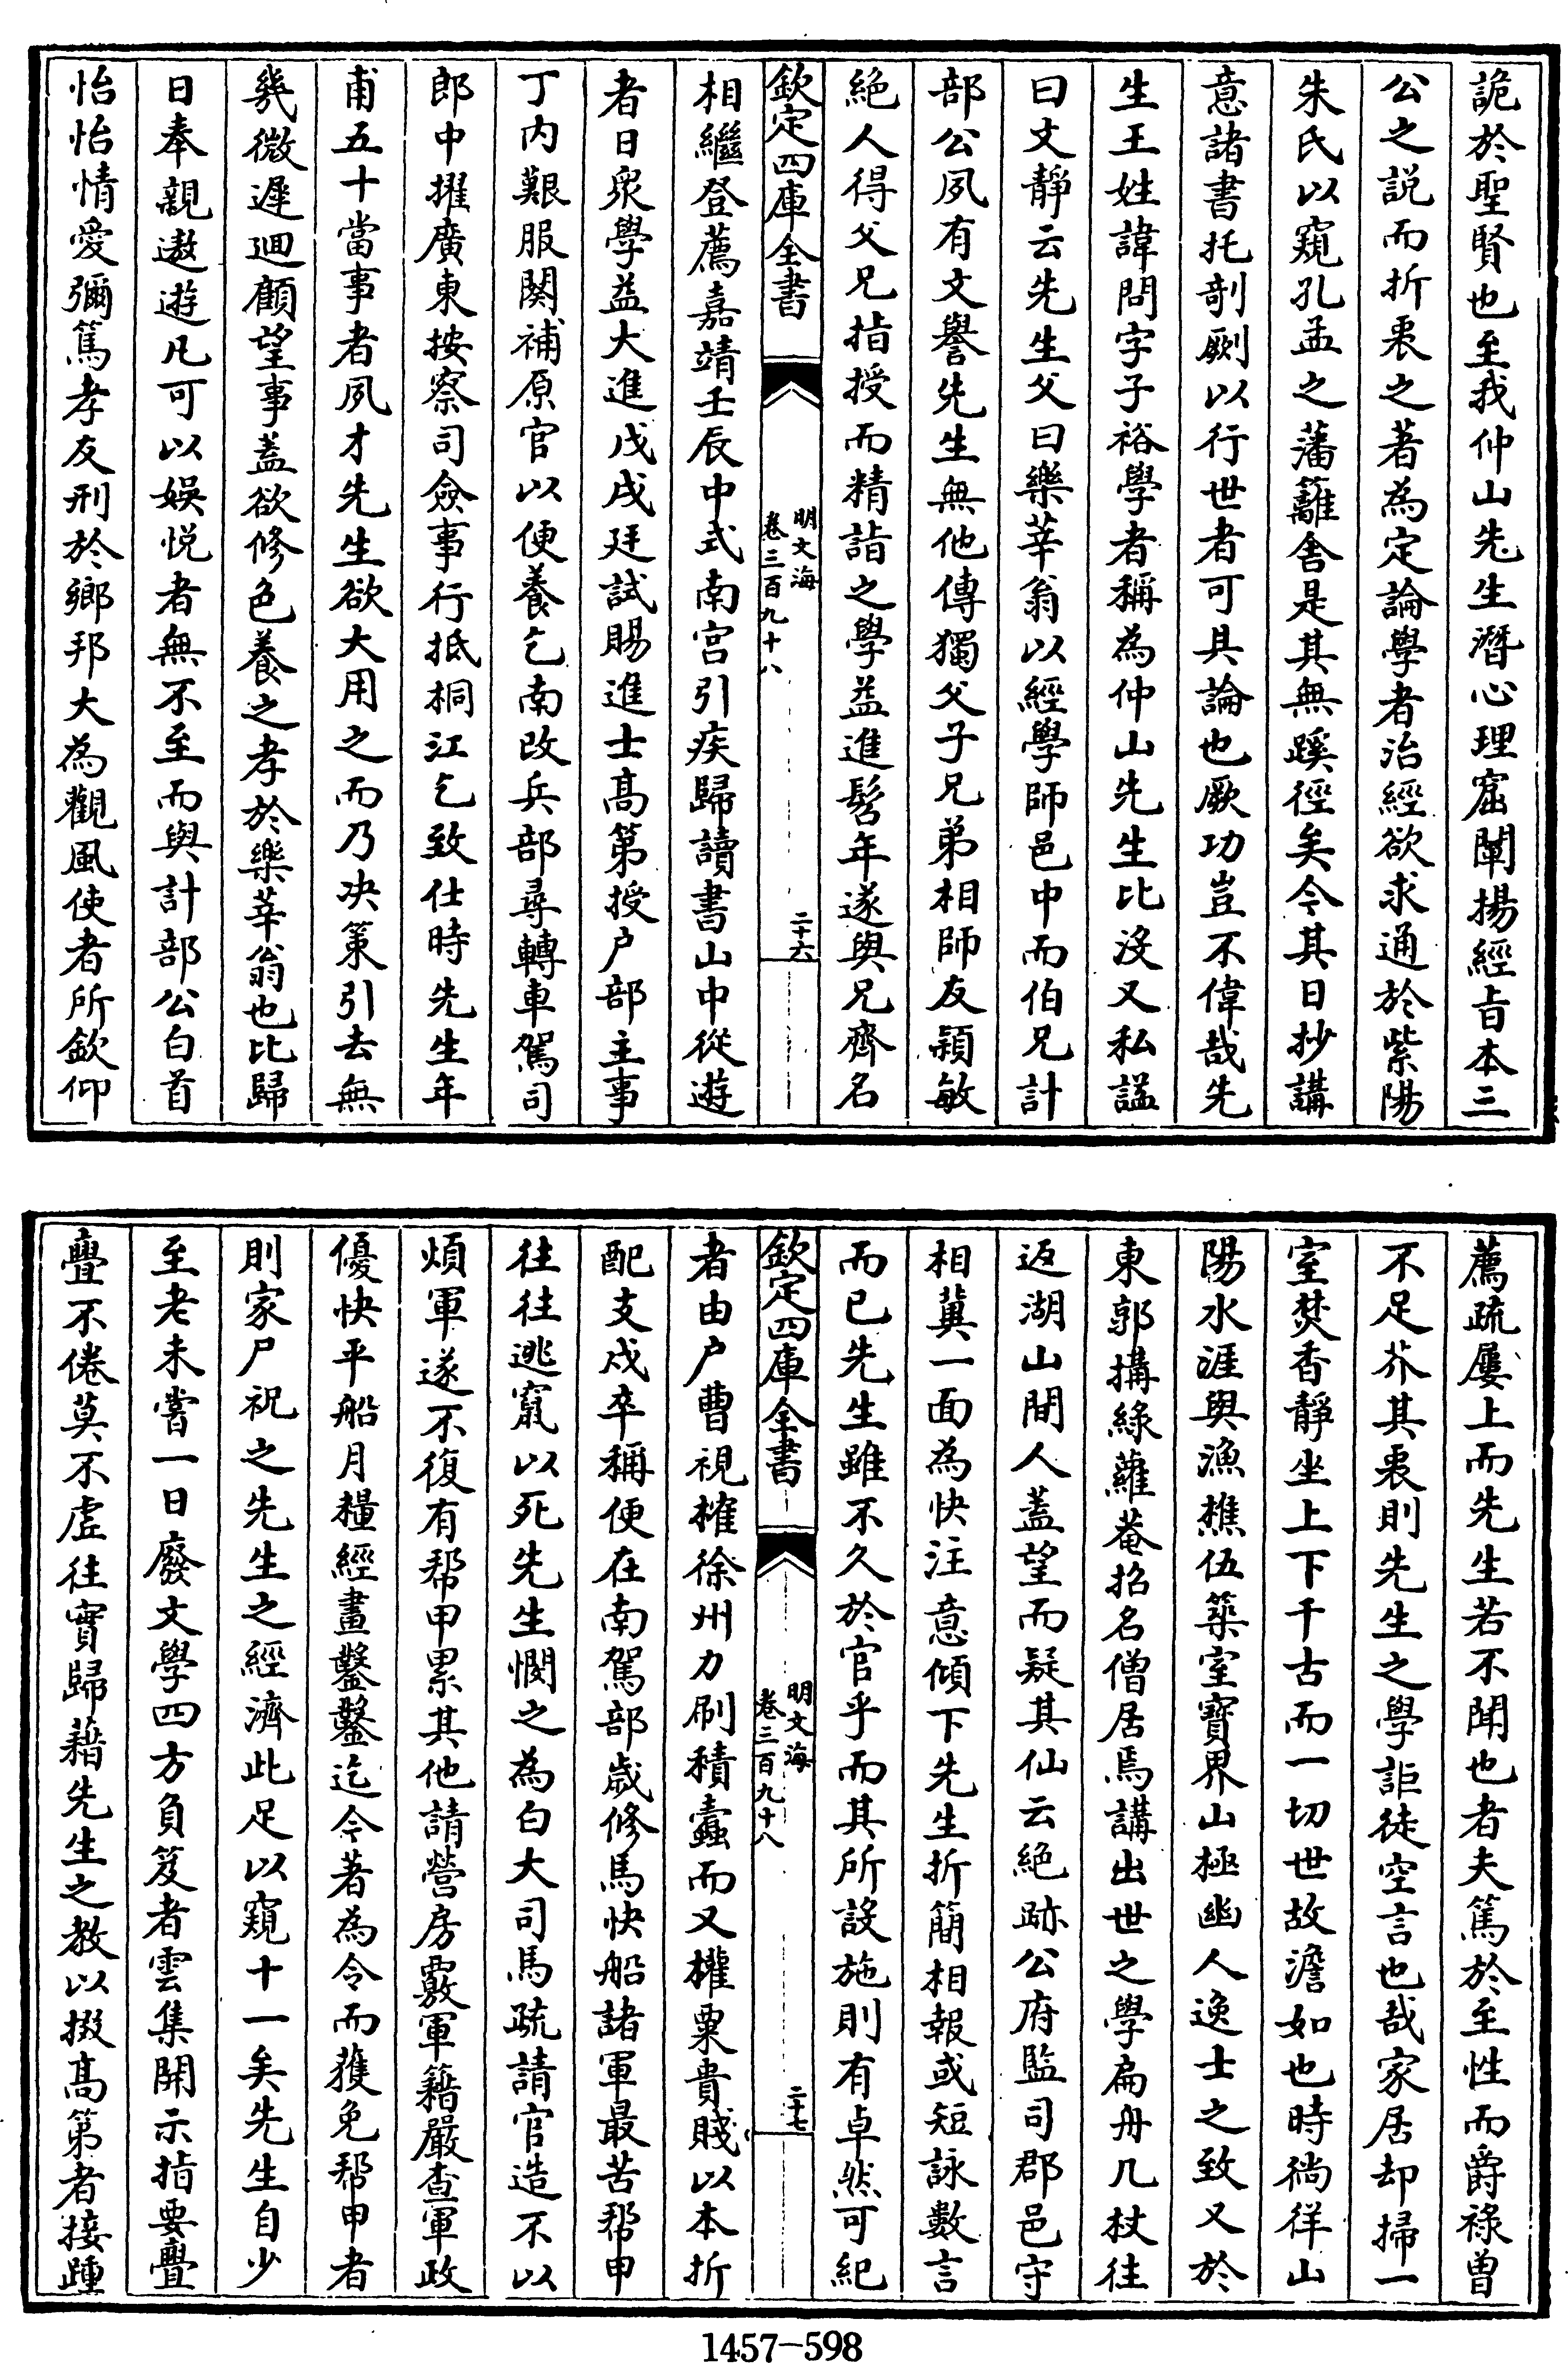 詭於聖賢也至我仲山先生潛心理窟闡揚經旨本三
公之説而折衷之著為定論學者治經欲求通於紫陽
朱氏以窺孔孟之藩籬舍是其無蹊徑矣今其日抄講
意諸書托剞劂以行世者可具論也厥功豈不偉哉先
生王姓諱問字子裕學者稱為仲山先生比沒又私諡
曰文靜云先生父曰樂莘翁以經學師邑中而伯兄計
部公夙有文譽先生無他傳獨父子兄弟相師友頴敏
絶人得父兄指授而精詣之學益進髫年遂與兄齊名
欽定四庫全書
明文海
卷三百九十八
二十六
相繼登薦嘉靖壬辰中式南宫引疾歸讀書山中從遊
者日衆學益大進戊戌廷試賜進士髙第授户部主事
丁内艱服闋補原官以便養乞南改兵部尋轉車駕司
郎中擢廣東按察司僉事行抵桐江乞致仕時先生年
甫五十當事者夙才先生欲大用之而乃决策引去無
幾微遲迴顧望事蓋欲修色養之孝於樂莘翁也比歸
日奉親遨遊凡可以娯悦者無不至而與計部公白首
怡怡情愛彌篤孝友刑於鄉邦大為觀風使者所欽仰
薦疏屢上而先生若不聞也者夫篤於至性而爵祿曾
不足芥其衷則先生之學詎徒空言也哉家居却掃一
室焚香靜坐上下千古而一切世故澹如也時徜徉山
陽水涯與漁樵伍築室寳界山極幽人逸士之致又於
東郭搆緑蘿菴招名僧居焉講出世之學扁舟几杖往
返湖山間人蓋望而疑其仙云絶跡公府監司郡邑守
相冀一面為快注意傾下先生折簡相報或短詠數言
而已先生雖不久於官乎而其所設施則有卓然可紀
欽定四庫全書
明文海
卷三百九十八
二十七
者由户曹視榷徐州力刷積蠧而又權粟貴賤以本折
配支戍卒稱便在南駕部歲修馬快船諸軍最苦帮甲
往往逃竄以死先生憫之為白大司馬疏請官造不以
煩軍遂不復有帮甲累其他請營房覈軍籍嚴查軍政
優快平船月糧經畫鑿鑿迄今著為令而獲免帮甲者
則家尸祝之先生之經濟此足以窺十一矣先生自少
至老未嘗一日廢文學四方負笈者雲集開示指要亹
亹不倦莫不虚往實歸藉先生之教以掇髙第者接踵
1457-598